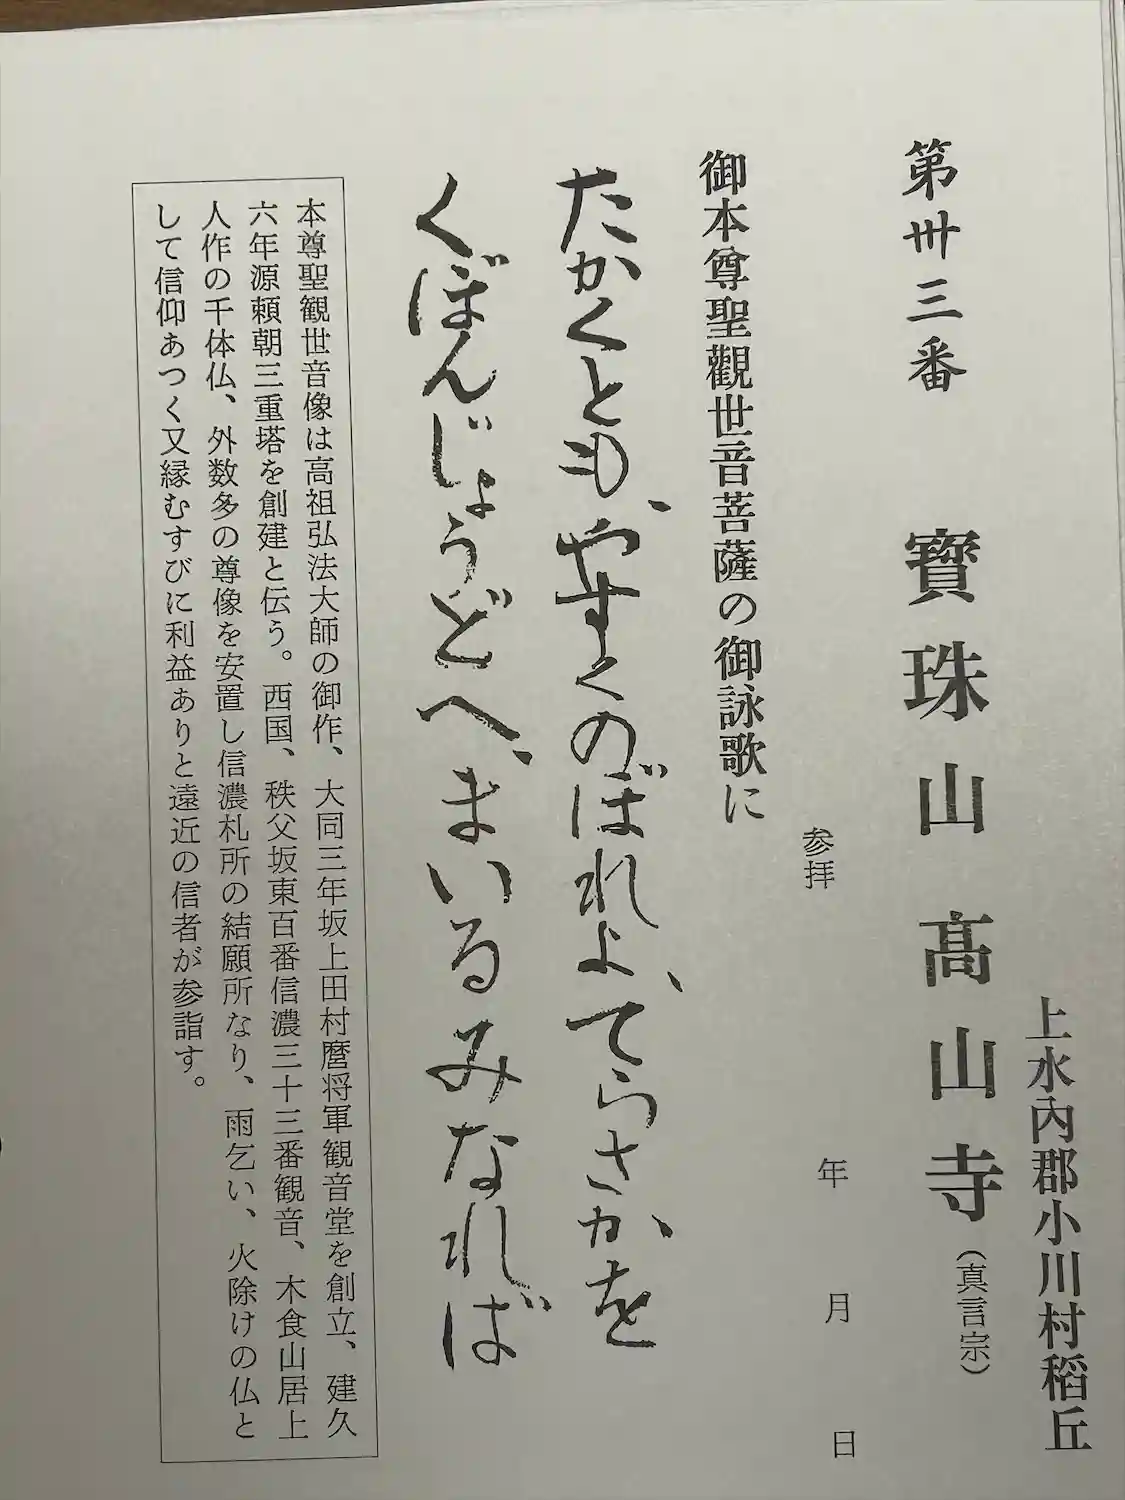 上水內郡小川村稻丘
第卅三番　寶珠山　髙山寺（真言宗）
参拝　年　月　日
御本尊聖觀世音菩薩の御詠歌に
たかくとも、やすくのぼれよ、てらさか、を
くぼんじょうどへ、まいるみなれば
本尊聖観世音像は高祖弘法大師の御作、大同三年坂上田村麿将軍観音堂を創立、建久
六年源頼朝三重塔を創建と伝う。西国、秩父坂東百番信濃三十三番観音、木食山居上
人作の千体仏、外数多の尊像を安置し信濃札所の結願所なり、雨乞い、火除けの仏と
して信仰あつく又縁むすびに利益ありと遠近の信者が参詣す。